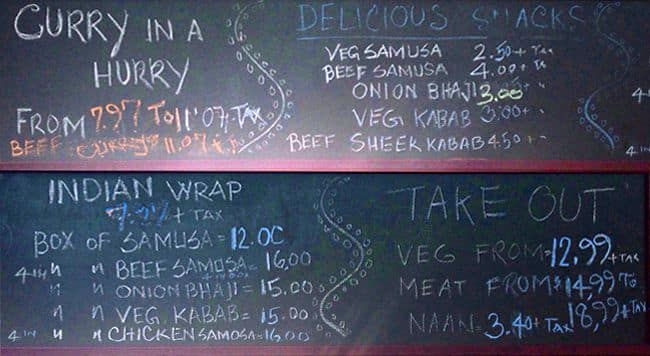 CURRY IN A
HURRY
FROM 7.97 TO 11.07+TAX
BEEF CURRY 11.07 +
DELICIOUS SNACKS
VEG SAMUSA 2.50+ TAX
BEEF SAMUSA 4.00+ TX
ONION BHAJI 3.00+ "
VEG KABAB 3.00+ "
BEEF SHEEK KABAB 4.50+ "
4
4 IN
INDIAN WRAP
7.97 + TAX
BOX OF SAMUSA = 12.00
4 IN " " BEEF SAMOSA = 16.00
" " ONION BHAJI = 15.00
" " VEG. KABAB = 15.00
4 IN " " CHICKEN SAMOSA = 16.00
TAKE OUT
VEG FROM - 12.99 + TAX
MEAT FROM $14.99 TO
18.99 + TAX
NAAN = 3.40+ TAX